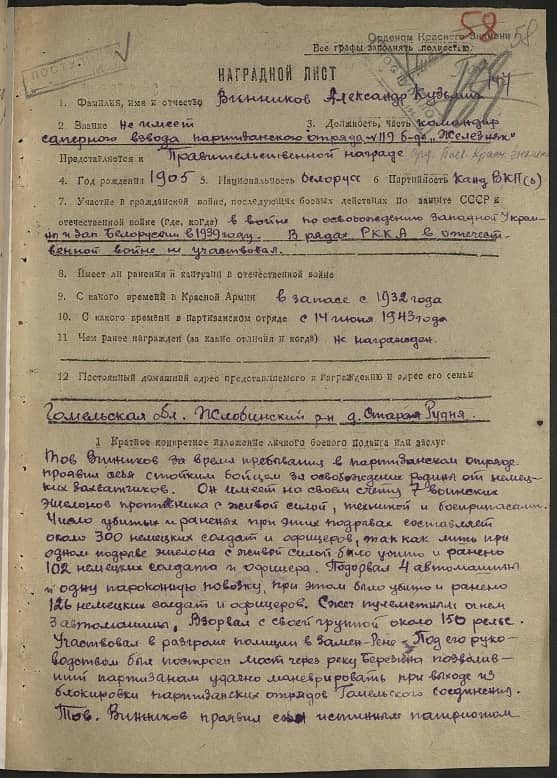 58
Орденом Красного Знамени 58
Все графы заполнять полностью.
НАГРАДНОЙ ЛИСТ
1. Фамилия, имя и отчество Винников Александр Кузьмич
2. Звание не имеет 3. Должность, часть командир
саперного взвода партизанского отряда №119 б-де „Железняк"
Представляется к Правительственной награде
4. Год рождения 1905 5. Национальность белорус 6 Партийность Канд ВКП(б)
7. Участие в гражданской войне, последующих боевых действиях по защите СССР и
отечественной войне (где, когда) в войне по освобождению Западной Украи-
ны и Зап Белоруссии в 1939 году. В рядах РККА в отечест-
венной войне не участвовал.
8. Имеет ли ранения и контузии в отечественной войне
9. С какого времени в Красной Армии в запасе с 1932 года
10. С какого времени в партизанском отряде с 14 июня 1943 года
11 Чем ранее награжден (за какие отличия и когда) не награжден.
12 Постоянный домашний адрес представляемого к награждению и адрес его семьи
Гомельская обл. Жлобинский р-н д. Старая Рудня.
1 Краткое конкретное изложение личного боевого подвига или заслуг
Тов Винников за время пребывания в партизанском отряде
проявил себя стойким бойцом за освобождение родины от немец-
ких захватчиков. Он имеет на своем счету 7 воинских
эшелонов противника с живой силой, техникой и боеприпасами.
Число убитых и раненых при этих подрывах составляет
около 300 немецких солдат и офицеров, так как лишь при
одном подрыве эшелона с живой силой было убито и ранено
102 немецких солдата и офицера. Подорвал 4 автомашины
и одну пароконную повозку, при этом было убито и ранено
126 немецких солдат и офицеров. Сжег пулеметным огнем
3 автомашины, Взорвал с своей группой около 150 рельс.
Участвовал в разгроме полиции в Под его руко-
водством был построен мост через реку Березина позволив-
ший партизанам удачно маневрировать при выходе из
блокировки партизанских отрядов Гомельского соединения.
Тов. Винников проявил себя истинным патриотом